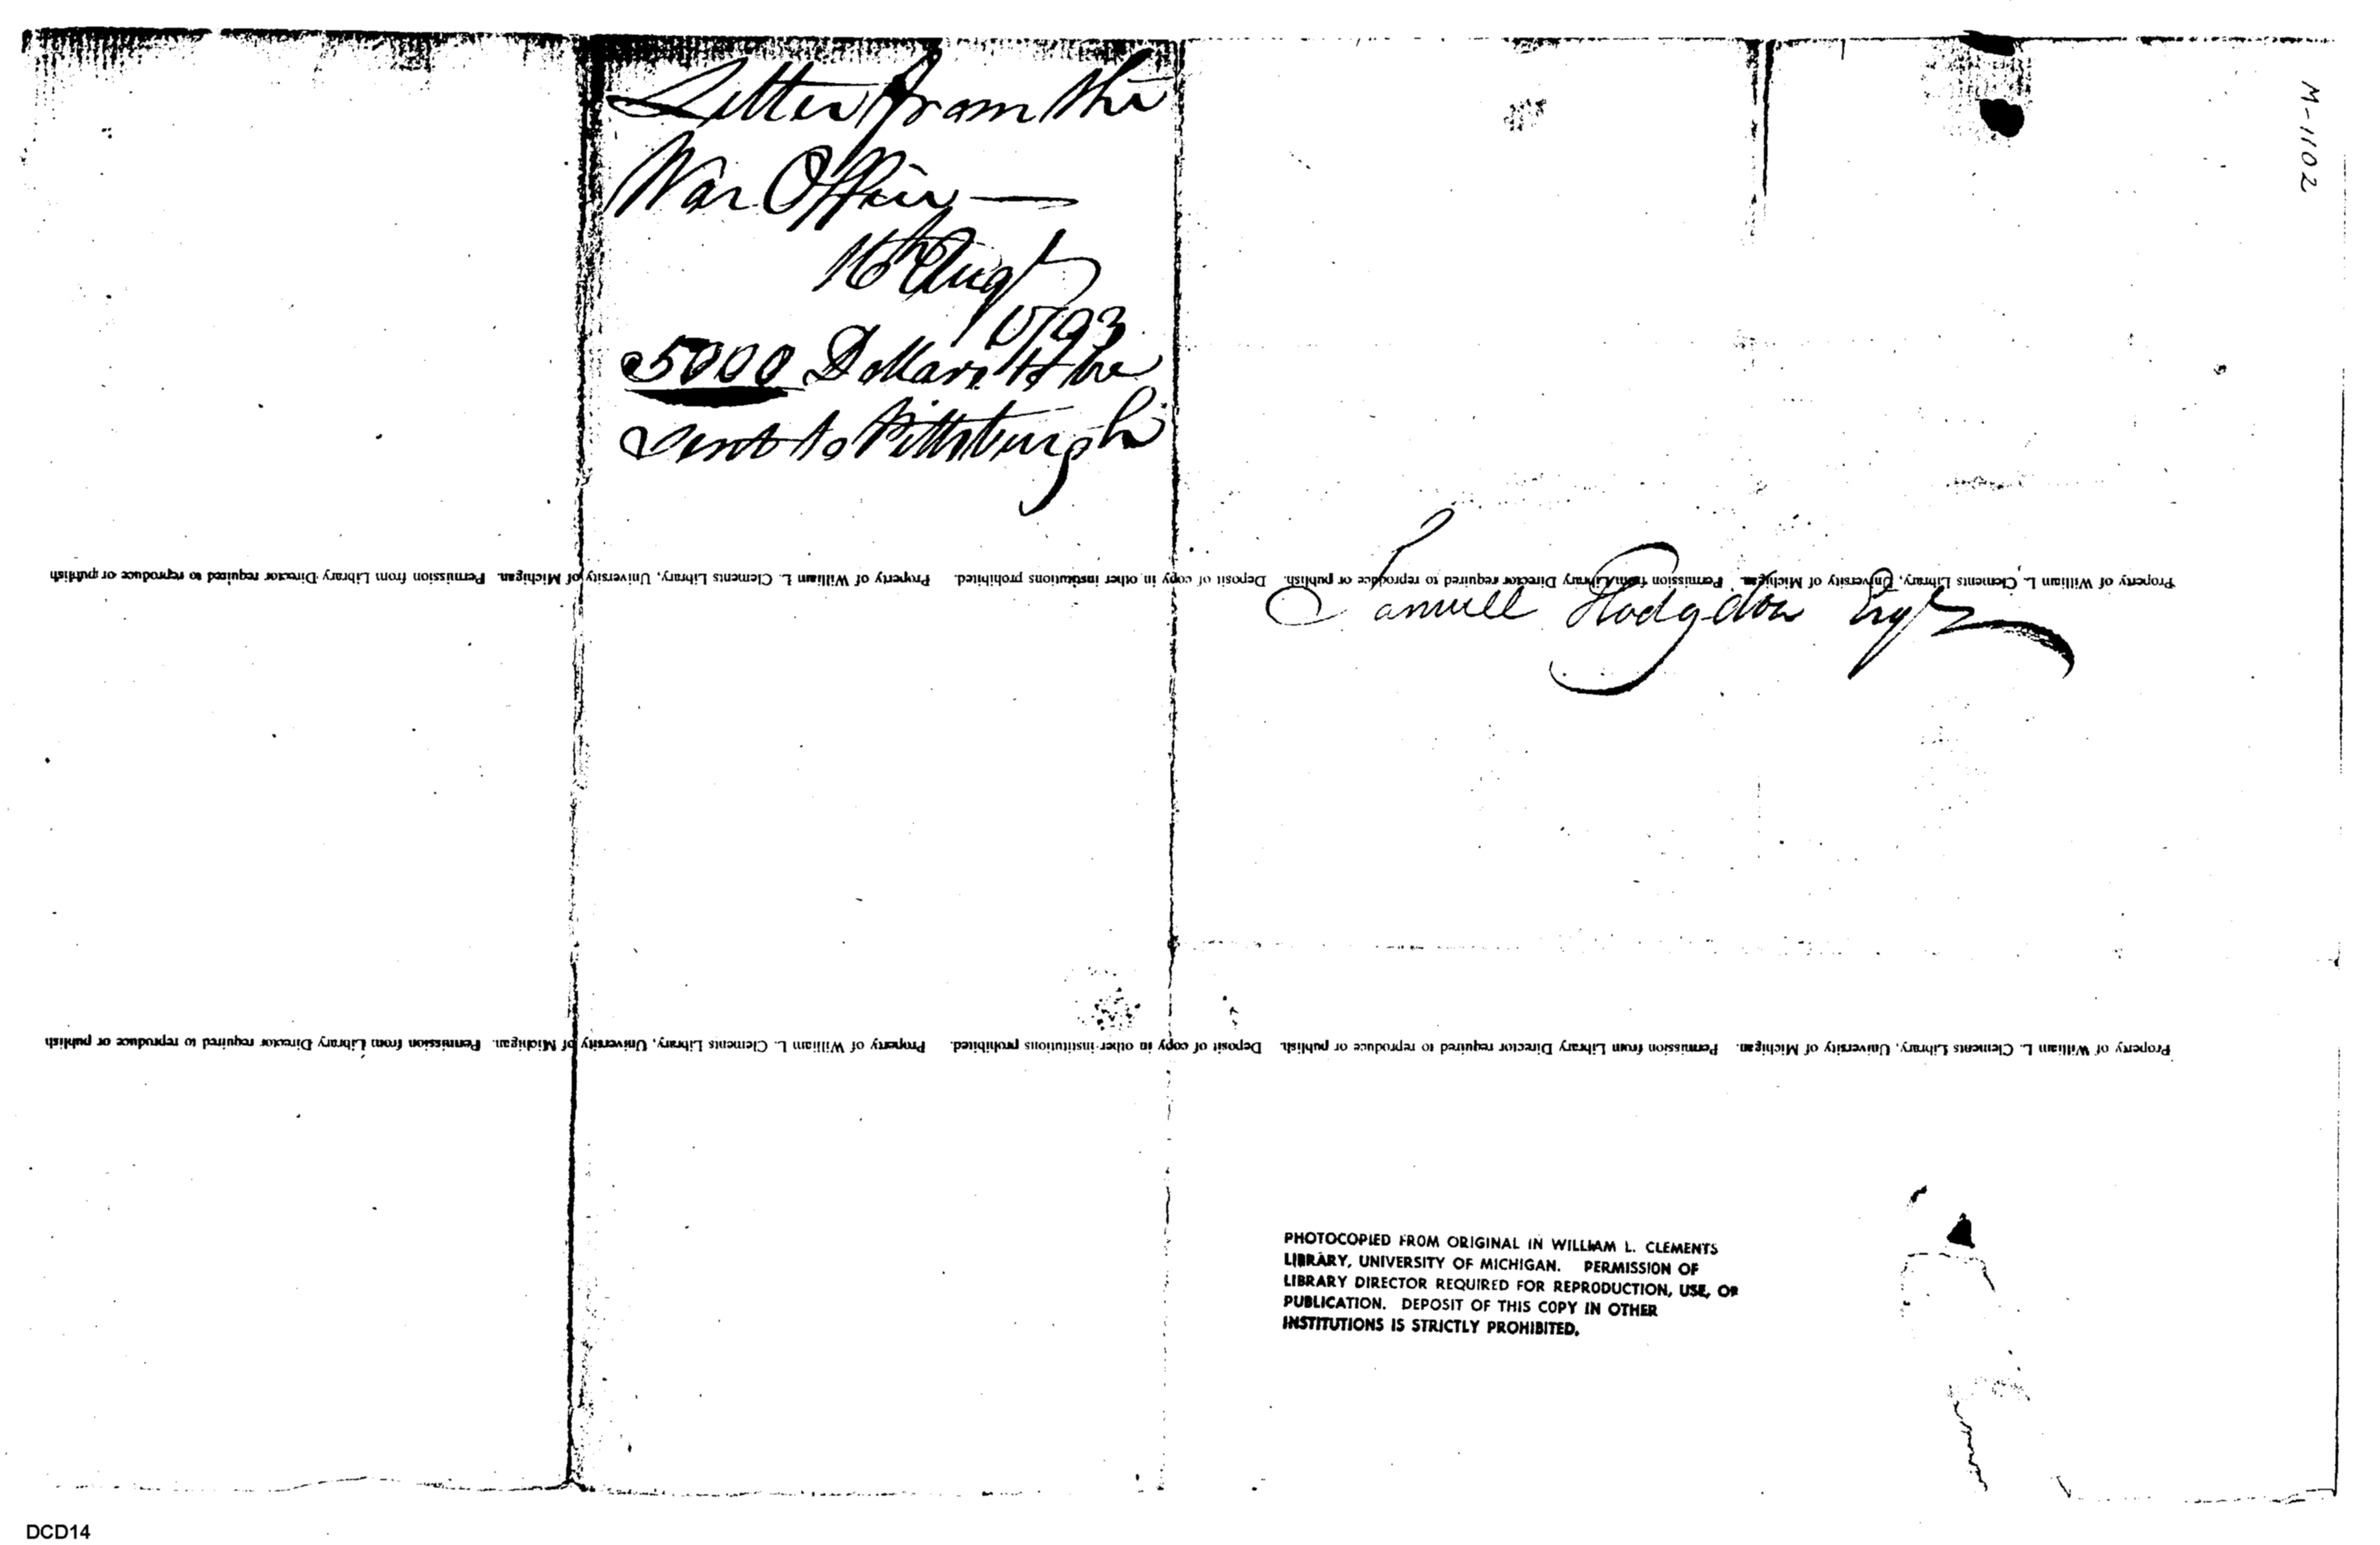 Letter from the
War Office —
16th Augt
1793
5000 Dollars to be
sent to Pittsburgh
M-1102
Samuell Hodgdon Esqr
Property of William L. Clements Library, University of Michigan. Permission from Library Director required to reproduce or publish. Deposit of copy in other institutions prohibited. Property of William L. Clements Library, University of Michigan. Permission from Library Director required to reproduce or publish
Property of William L. Clements Library, University of Michigan. Permission from Library Director required to reproduce or publish. Deposit of copy in other institutions prohibited. Property of William L. Clements Library, University of Michigan. Permission from Library Director required to reproduce or publish
PHOTOCOPIED FROM ORIGINAL IN WILLIAM L. CLEMENTS
LIBRARY, UNIVERSITY OF MICHIGAN. PERMISSION OF
LIBRARY DIRECTOR REQUIRED FOR REPRODUCTION, USE, OR
PUBLICATION. DEPOSIT OF THIS COPY IN OTHER
INSTITUTIONS IS STRICTLY PROHIBITED.
DCD14